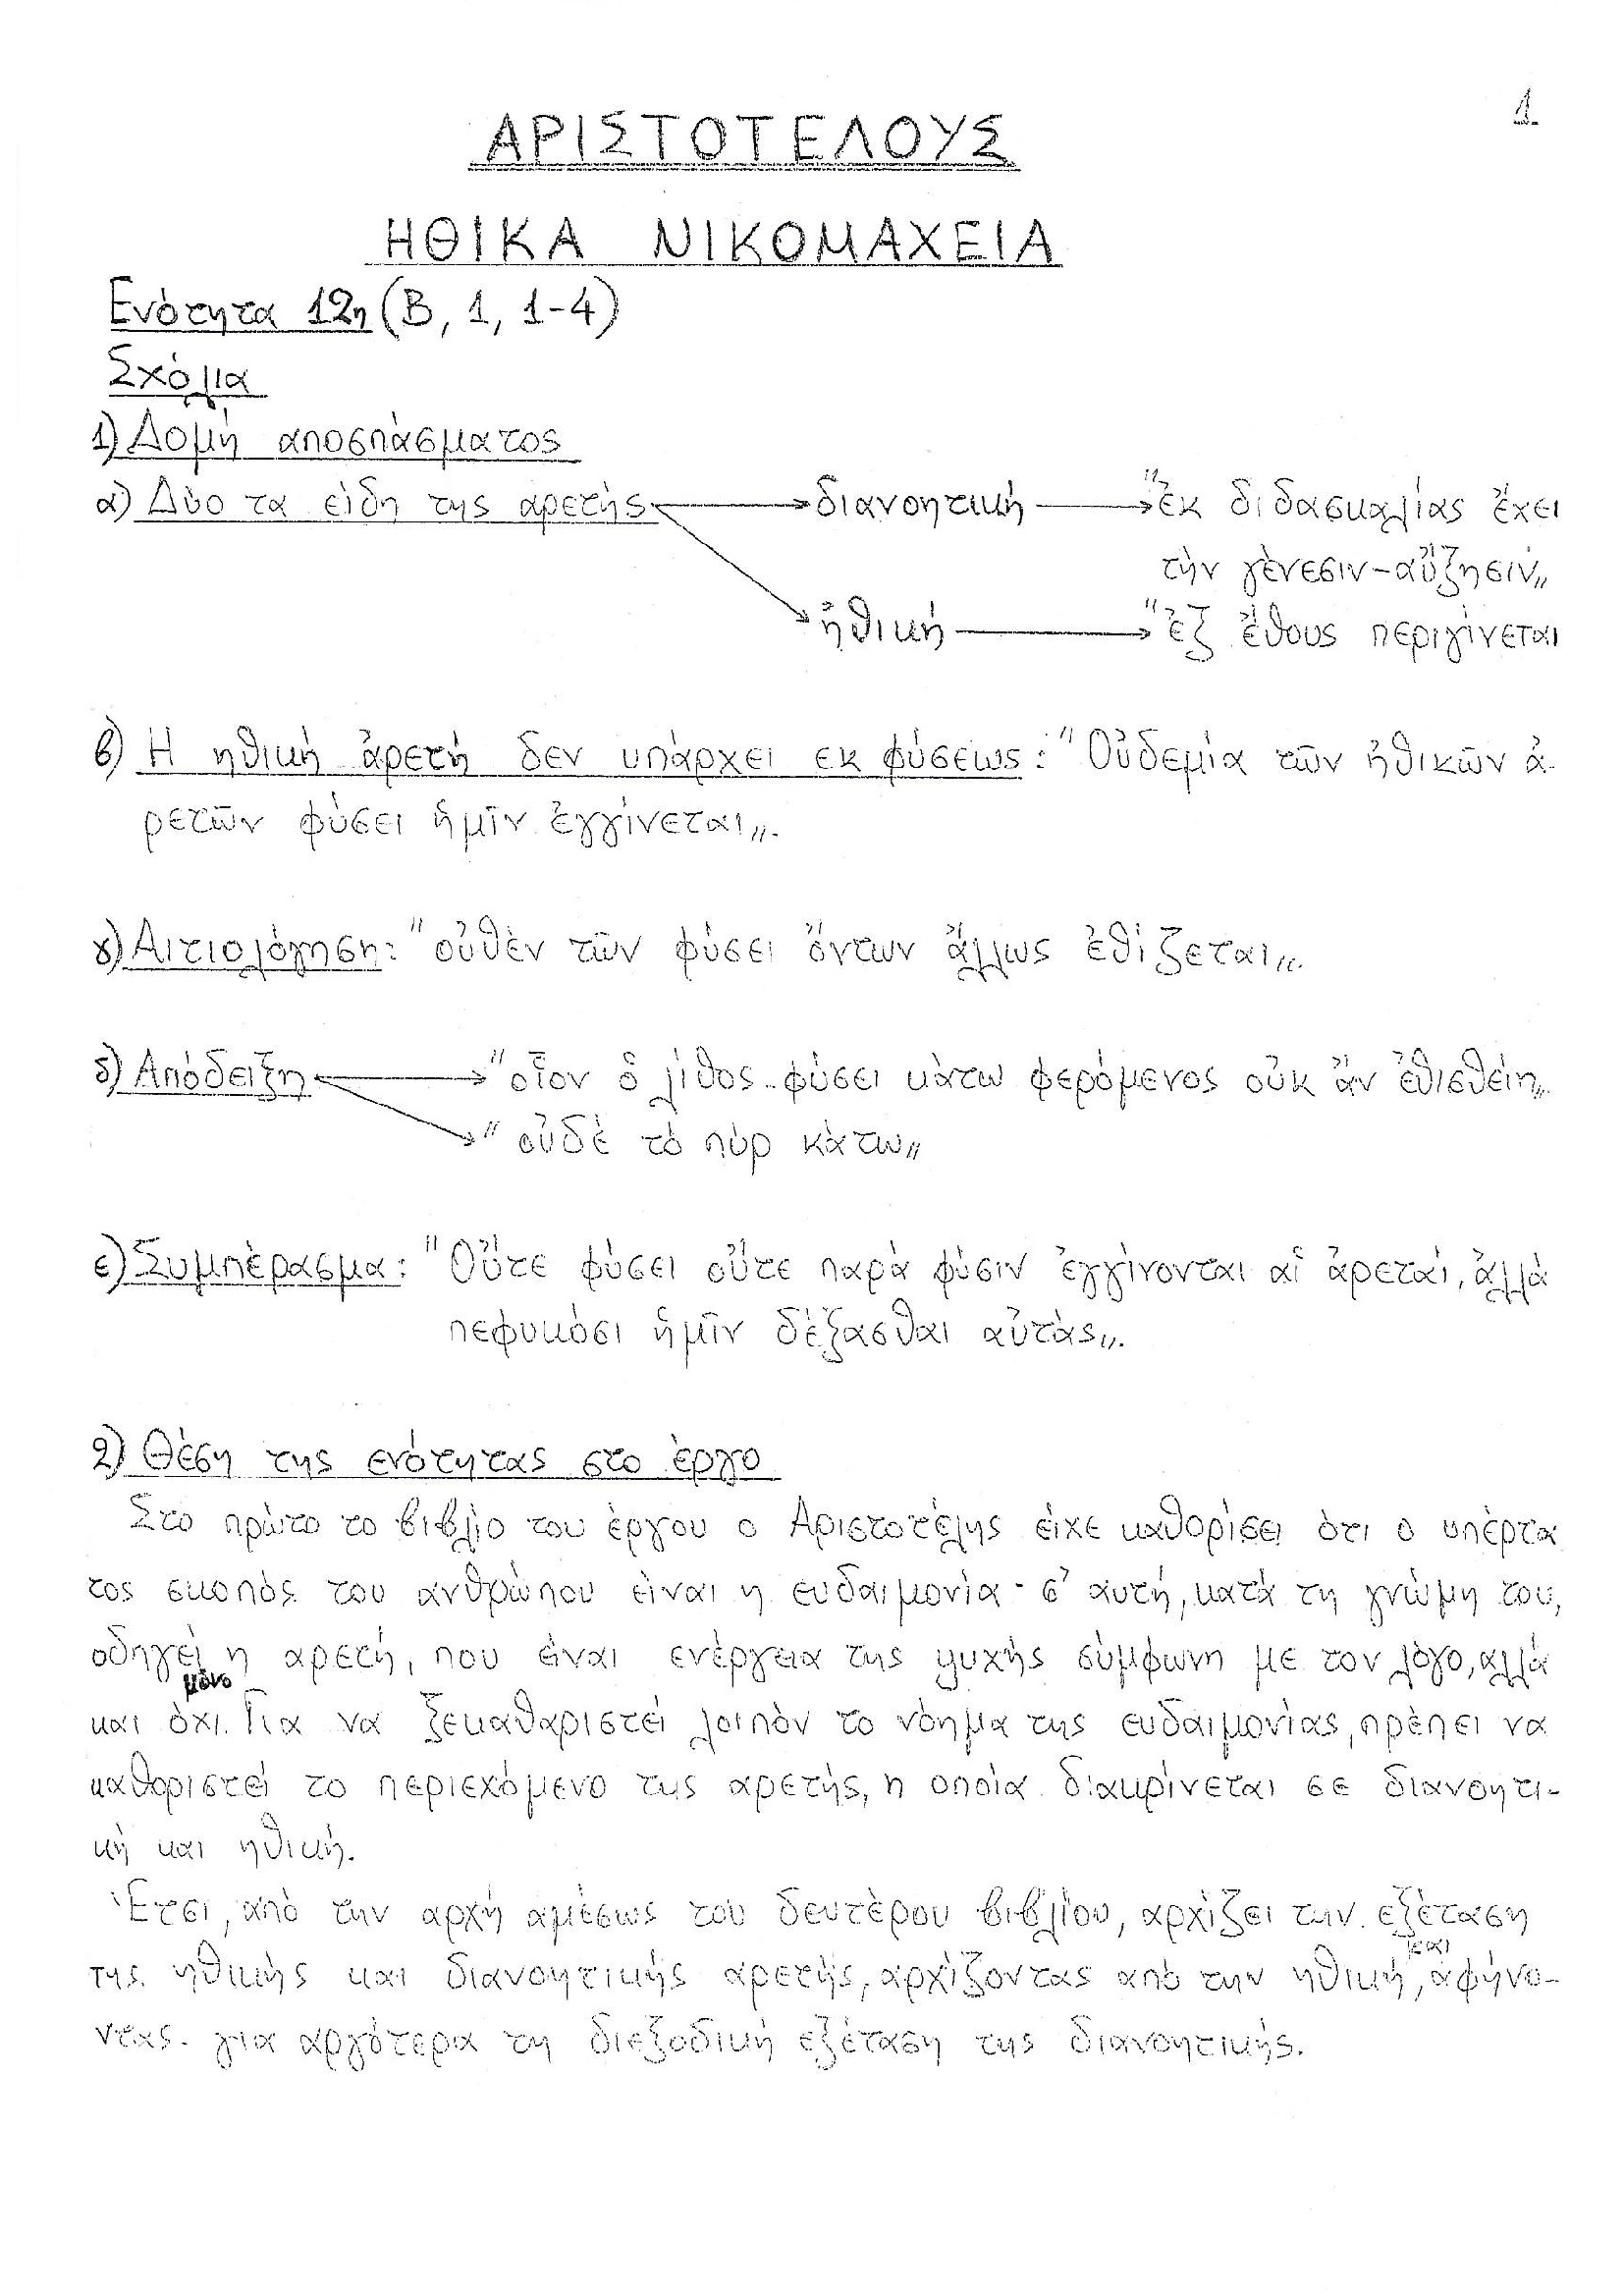 1.
ΑΡΙΣΤΟΤΕΛΟΥΣ
ΗΘΙΚΑ ΝΙΚΟΜΑΧΕΙΑ
Ενότητα 12η (Β, 1, 1-4)
Σχόλια
1) Δομή αποσπάσματος
α) Δύο τα είδη της αρετής → διανοητική → "ἐκ διδασκαλίας ἔχει
τήν γένεσιν-αὔξησιν„
→ ἠθική → "ἐξ ἔθους περιγίνεται
β) Η ηθική ἀρετή δεν υπάρχει εκ φύσεως: "Οὐδεμία τῶν ἠθικῶν ἀ-
ρετῶν φύσει ἡμῖν ἐγγίνεται„.
γ) Αιτιολόγηση: "οὐθέν τῶν φύσει ὄντων ἄλλως ἐθίζεται„.
δ) Απόδειξη → "οἷον ὁ λίθος φύσει κάτω φερόμενος οὐκ ἄν ἐθισθείη„.
→ "οὐδέ τό πύρ κάτω„
ε) Συμπέρασμα: "Οὔτε φύσει οὔτε παρά φύσιν ἐγγίνονται αἱ ἀρεταί, ἀλλά
πεφυκόσι ἡμῖν δέξασθαι αὐτάς„.
2) Θέση της ενότητας στο έργο
Στο πρώτο το βιβλίο του έργου ο Αριστοτέλης είχε καθορίσει ότι ο υπέρτα
τος σκοπός του ανθρώπου είναι η ευδαιμονία· σ' αυτή, κατά τη γνώμη του,
οδηγεί η αρετή, που είναι ενέργεια της ψυχής σύμφωνη με τον λόγο, αλλά
και όχι μόνο. Για να ξεκαθαριστεί λοιπόν το νόημα της ευδαιμονίας, πρέπει να
καθοριστεί το περιεχόμενο της αρετής, η οποία διακρίνεται σε διανοητι-
κή και ηθική.
Έτσι, από την αρχή αμέσως του δευτέρου βιβλίου, αρχίζει την εξέταση
της ηθικής και διανοητικής αρετής, αρχίζοντας από την ηθική, και αφήνο-
ντας για αργότερα τη διεξοδική εξέταση της διανοητικής.